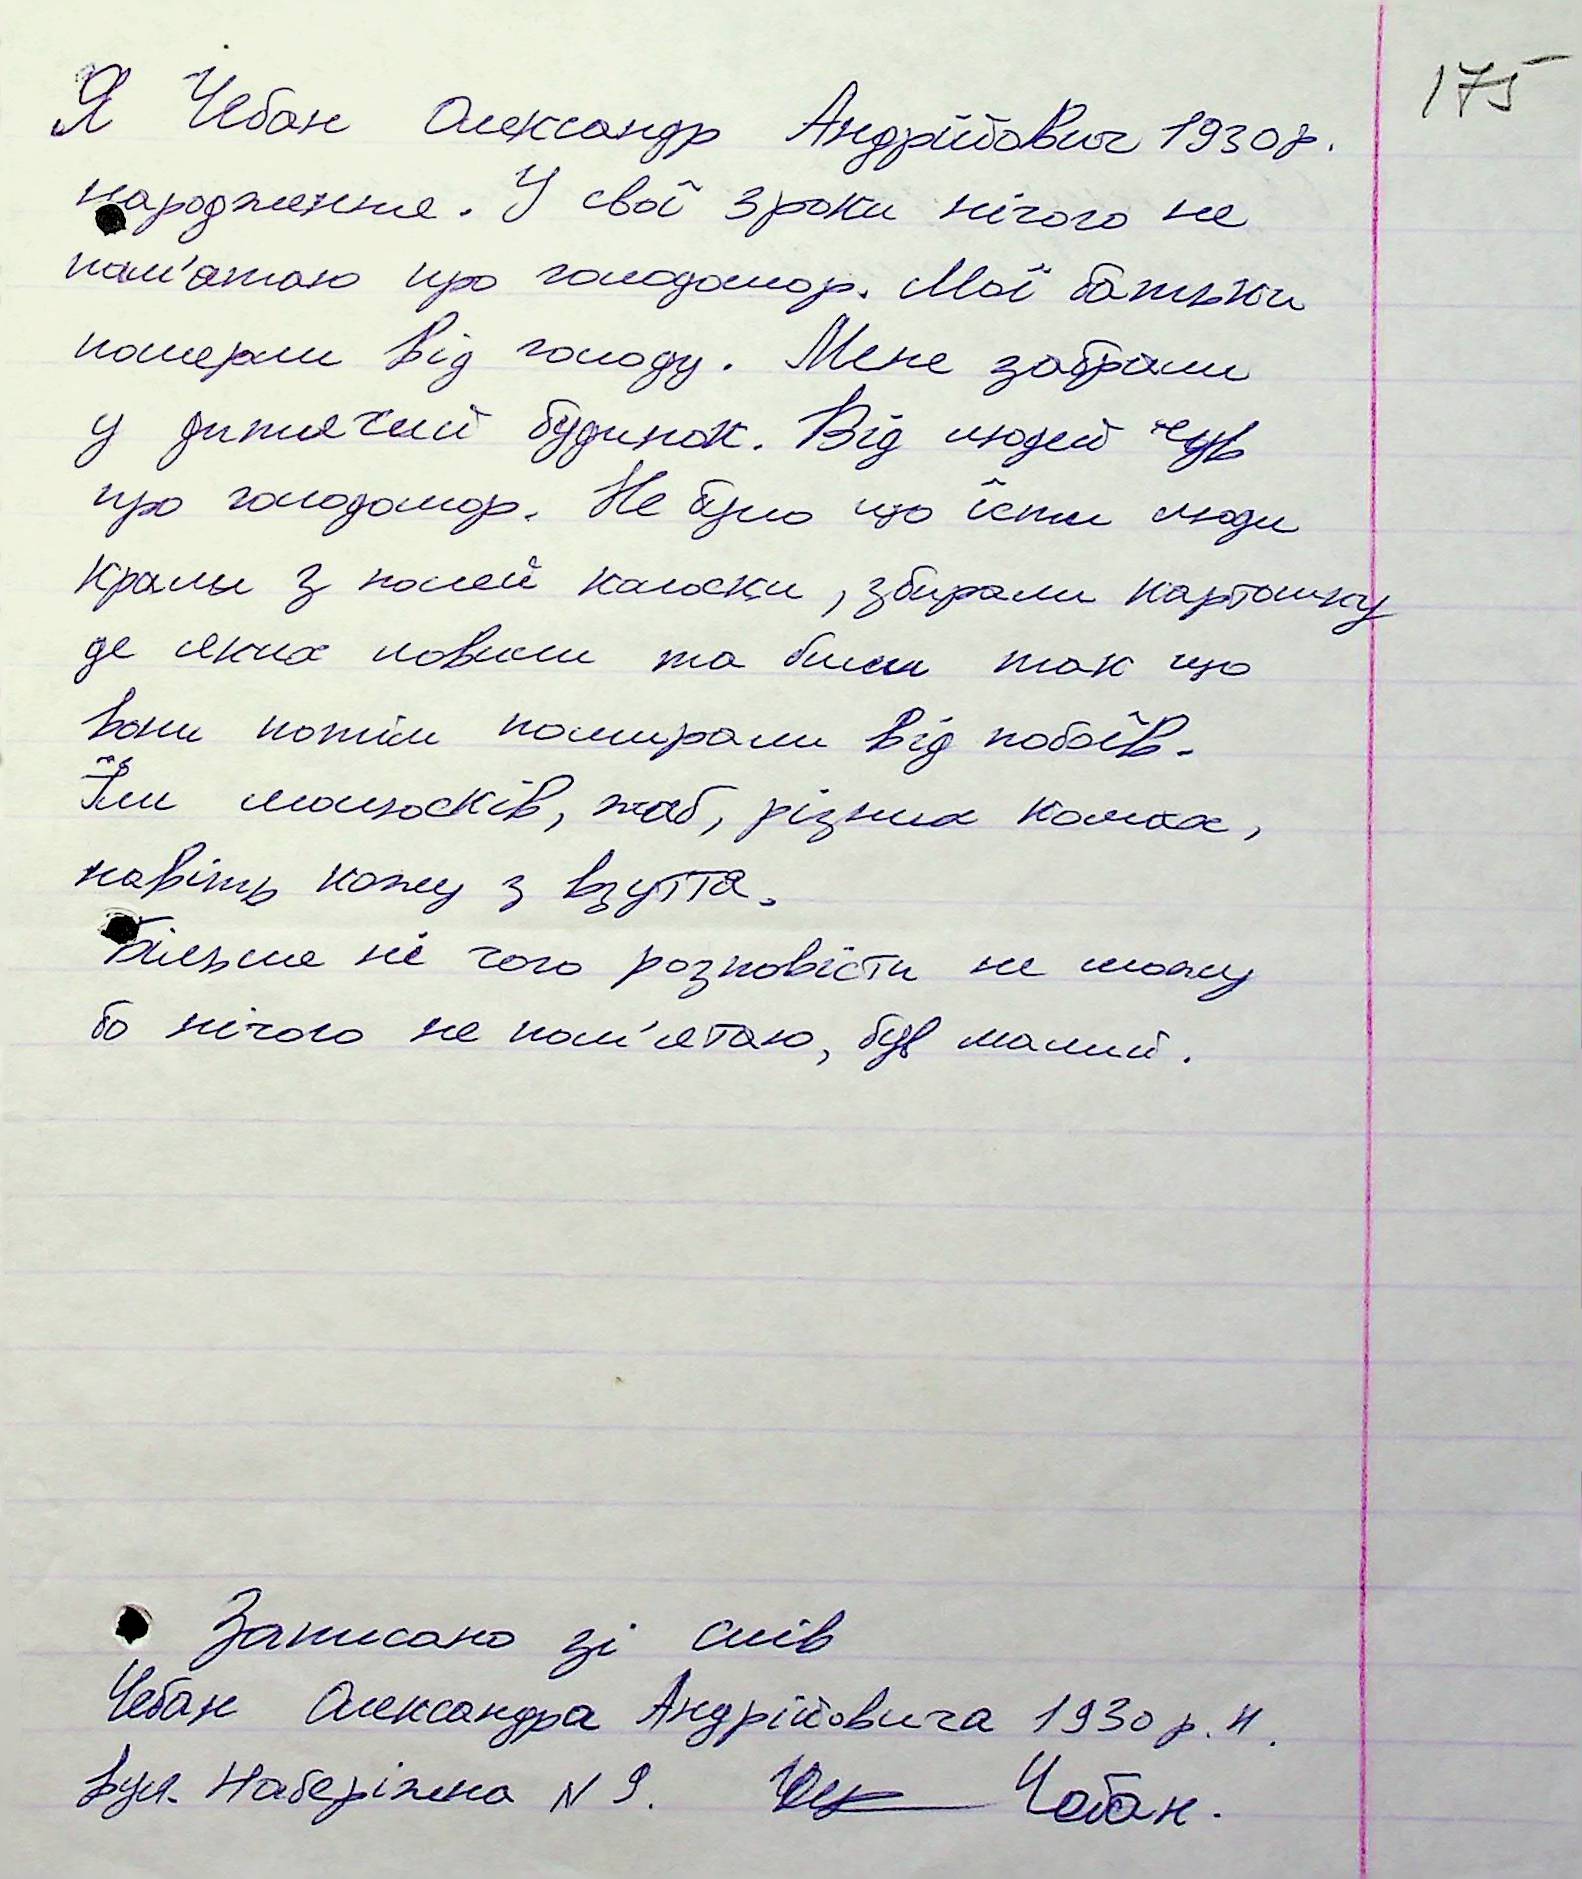 175
Я Чебан Олександр Андрійович 1930р.
народження. У свої 3 роки нічого не
пам'ятаю про голодомор. Мої батьки
померли від голоду. Мене забрали
у дитячий будинок. Від людей чув
про голодомор. Не було що їсти люди
крали з полей колоски, збирали картошку
де яких ловили та били так що
вони потім помирали від побоїв.
Їли молюсків, жаб, різних комах,
навіть кожу з взуття.
Більше ні чого розповісти не можу
бо нічого не пам'ятаю, був малий.
Записано зі слів
Чебан Олександра Андрійовича 1930 р.н.
вул. Набережна N 9. Чебан.